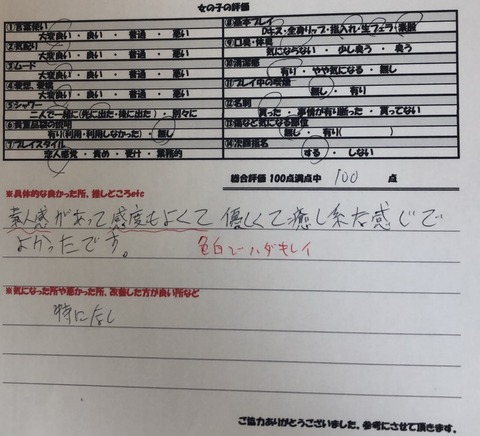 女の子の評価
①言葉使い
大変良い・良い・普通・悪い
②気配り
大変良い・良い・普通・悪い
③ムード
大変良い・良い・普通・悪い
④
大変良い・良い・普通・悪い
⑤シャワー
二人で一緒に(先に出た・後に出た)・別々に
⑥貴重品袋の利用
有り(利用・利用しなかった)・無し
⑦プレイスタイル
恋人感覚・責め・受け・業務的
⑧基本プレイ
Dキス・全身リップ・指入れ・生フェラ・素股
⑨口臭・体臭
気にならない・少し臭う・臭う
⑩清潔感
有り・やや気になる・無し
⑪プレイ中の喫煙
無し・有り
⑫名刺
貰った・事情が有り断った・貰ってない
⑬傷など気になる部位
無し・有り( )
⑭次回指名
する・しない
総合評価 100点満点中 100 点
※具体的な良かった所、推しどころetc
素人感があって感度もよくて優しくて癒し系な感じで
よかったです。 色白でハダキレイ
※気になった所や悪かった所、改善した方が良い所など
特になし
ご協力ありがとうございました。参考にさせて頂きます。